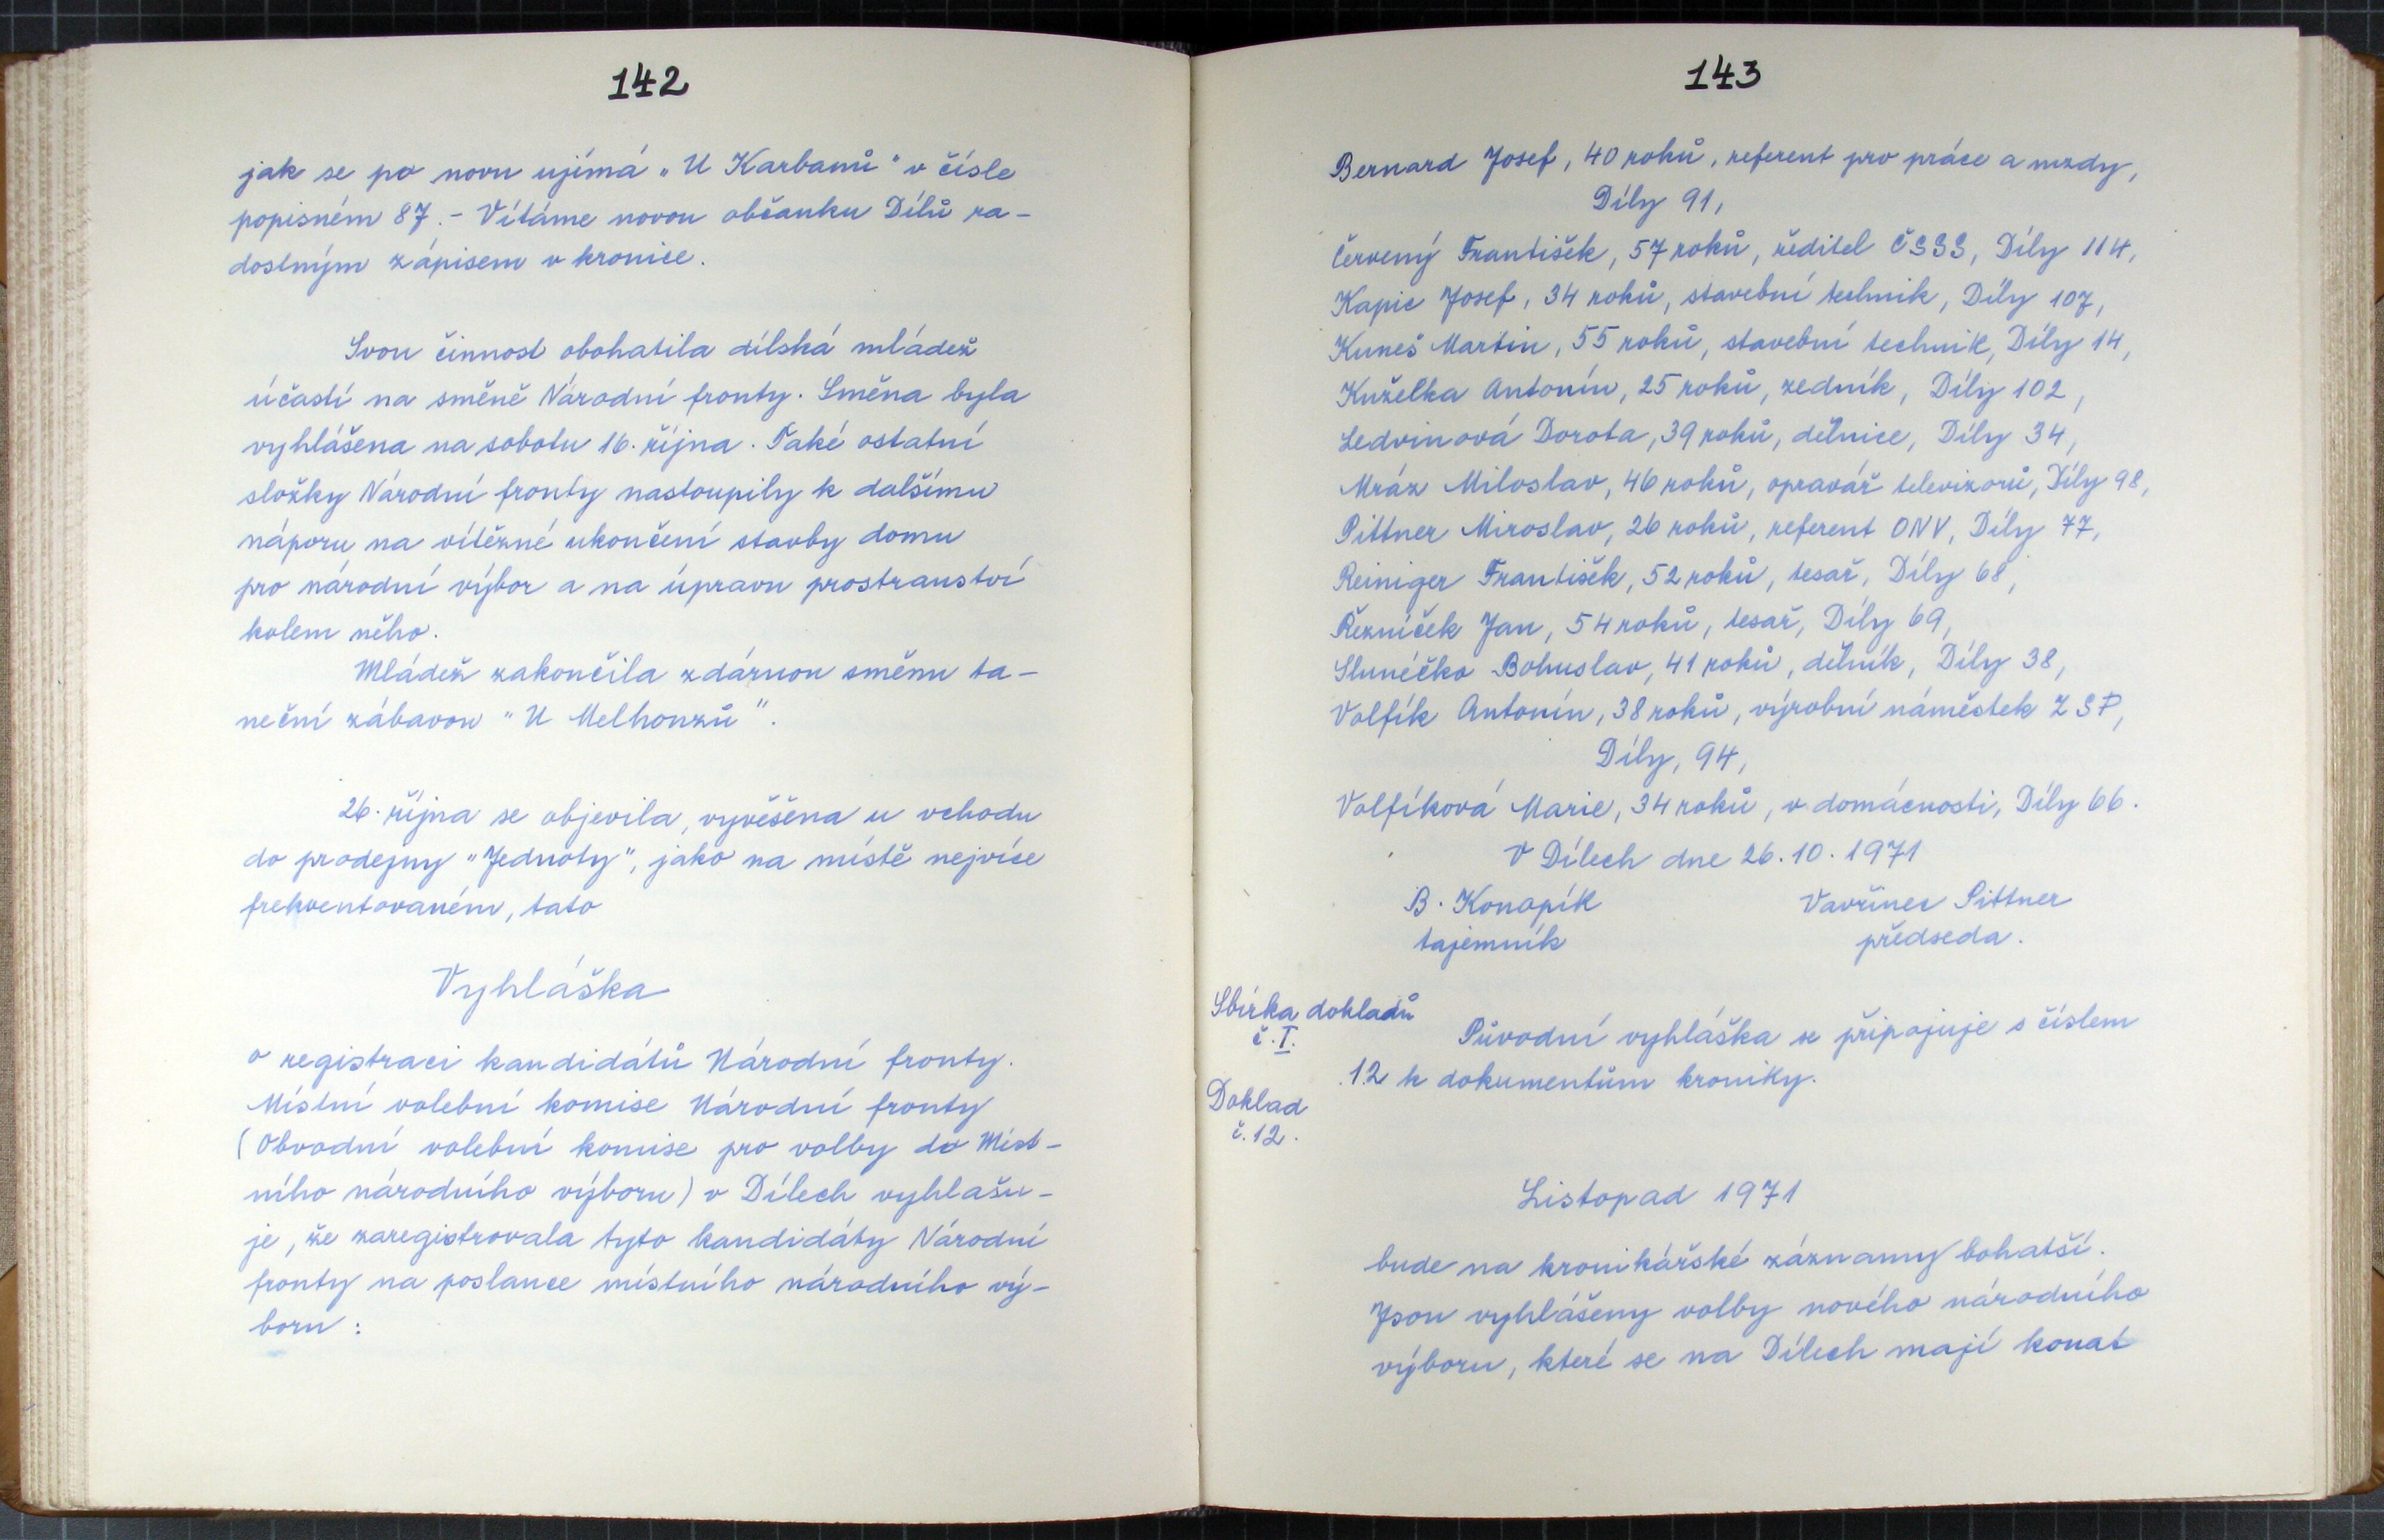 142
jak se po novu ujímá „U Karbanů“ v čísle
popisném 87. - Vítáme novou občanku Dílů ra-
dostným zápisem v kronice.
Svou činnost obohatila dílská mládež
účastí na směně Národní fronty. Směna byla
vyhlášena na sobotu 16. října. Také ostatní
složky Národní fronty nastoupily k dalšímu
náporu na vítězné ukončení stavby domu
pro národní výbor a na úpravu prostranství
kolem něho.
Mládež zakončila zdárnou směnu ta-
neční zábavou "U Melhonzů".
26. října se objevila, vyvěšena u vchodu
do prodejny "Jednoty", jako na místě nejvíce
frekventovaném, tato
Vyhláška
o registraci kandidátů Národní fronty.
Místní volební komise Národní fronty
(Obvodní volební komise pro volby do Míst-
ního národního výboru) v Dílech vyhlašu-
je, že zaregistrovala tyto kandidáty Národní
fronty na poslance místního národního vý-
boru:
143
Bernard Josef, 40 roků, referent pro práce a mzdy,
Díly 91,
Červený František, 57 roků, ředitel ČSSS, Díly 114,
Kapic Josef, 34 roků, stavební technik, Díly 107,
Kuneš Martin, 55 roků, stavební technik, Díly 14,
Kuželka Antonín, 25 roků, zedník, Díly 102,
Ledvinová Dorota, 39 roků, dělnice, Díly 34,
Mráz Miloslav, 46 roků, opravář televizorů, Díly 98,
Pittner Miroslav, 26 roků, referent ONV, Díly 77,
Reiniger František, 52 roků, tesař, Díly 68,
Řezníček Jan, 54 roků, tesař, Díly 69,
Slunéčko Bohuslav, 41 roků, dělník, Díly 38,
Volfík Antonín, 38 roků, výrobní náměstek ZSP,
Díly, 94,
Volfíková Marie, 34 roků, v domácnosti, Díly 66.
V Dílech dne 26.10.1971
B. Konopík Vavřinec Pittner
tajemník předseda.
Sbírka dokladů
č. I.
Původní vyhláška se připojuje s číslem
12 k dokumentům kroniky.
Doklad
č. 12.
Listopad 1971
bude na kronikářské záznamy bohatší.
Jsou vyhlášeny volby nového národního
výboru, které se na Dílech mají konat